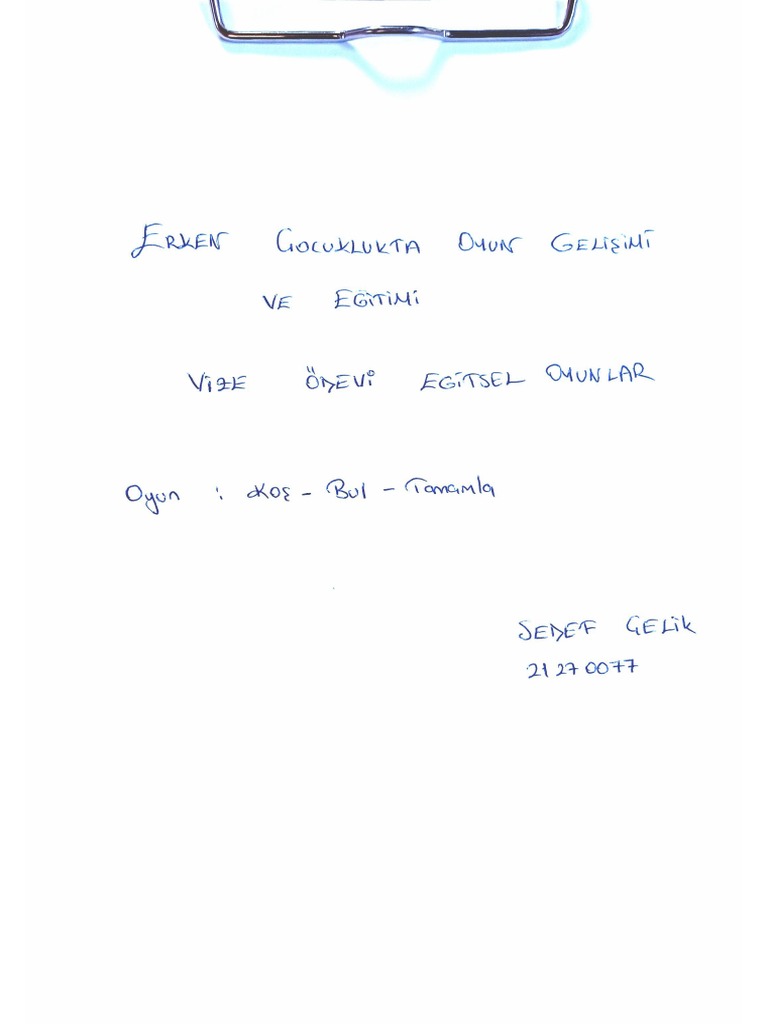 ERKEN ÇOCUKLUKTA OYUN GELİŞİMİ
VE EĞİTİMİ
VİZE ÖDEVİ EĞİTSEL OYUNLAR
Oyun : Koş - Bul - Tamamla
SEDEF ÇELİK
21270077